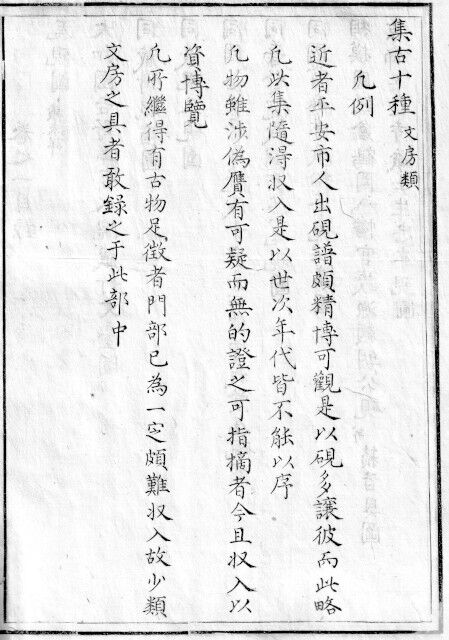 集古十種 文房類
凡例
近者平安市人出硯譜頗精博可觀是以硯多讓彼而此略
凡此集隨得収入是以世次年代皆不能以序
凡物雖涉偽贋有可疑而無的證之可指摘者今且収入以
資博覽
凡所繼得有古物足徴者門部已為一定頗難収入故少類
文房之具者敢録之于此部中